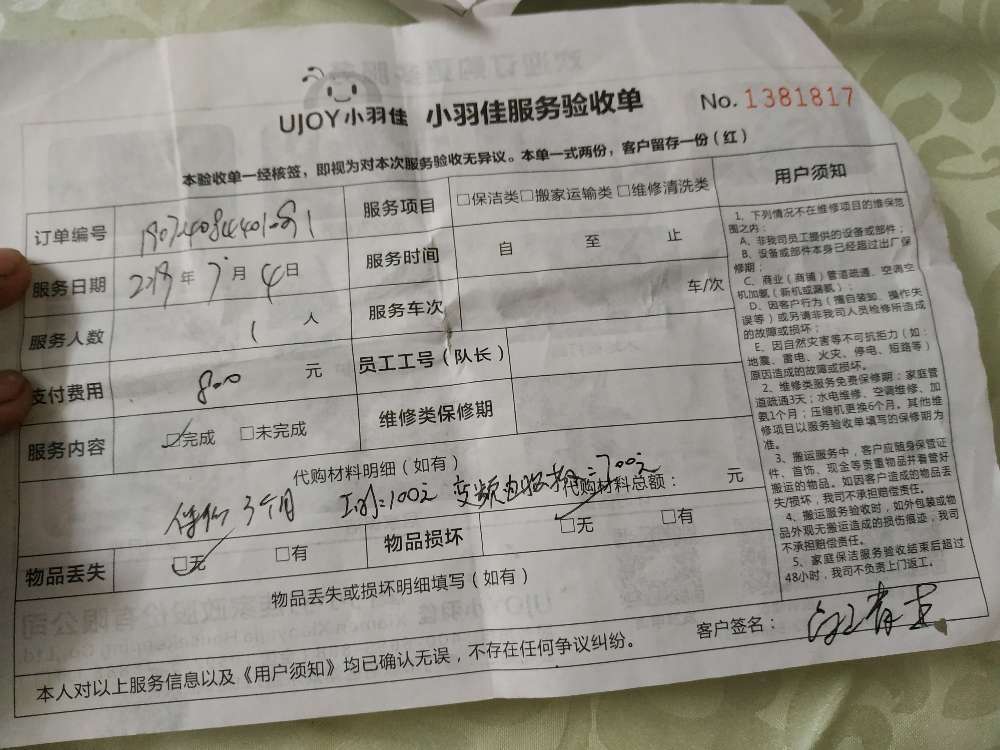 UJOY小羽佳 小羽佳服务验收单 No. 1381817
本验收单一经核签，即视为对本次服务验收无异议。本单一式两份，客户留存一份（红）
订单编号
服务项目 □保洁类□搬家运输类□维修清洗类
服务日期 2019年7月4日
服务时间 自 至 止
服务人数 1 人
服务车次 车/次
支付费用 800 元
员工工号（队长）
服务内容 ☑完成 □未完成
维修类保修期
代购材料明细（如有）
保修3个月 工时=100元 变频电脑板=700元
代购材料总额： 元
物品丢失 ☑无 □有
物品损坏 ☑无 □有
物品丢失或损坏明细填写（如有）
本人对以上服务信息以及《用户须知》均已确认无误，不存在任何争议纠纷。
客户签名：
用户须知
1、下列情况不在维修项目的维保范
围之内：
A、非我司员工提供的设备或部件；
B、设备或部件本身已经超过出厂保
修期；
C、商业（商铺）管道疏通、空调空
机加氨（新机或漏氨）；
D、因客户行为（擅自装卸、操作失
误等）或另请非我司人员检修所造成
的故障或损坏；
E、因自然灾害等不可抗拒力（如：
地震、雷电、火灾、停电、短路等）
原因造成的故障或损坏。
2、维修类服务免费保修期：家庭管
道疏通3天；水电维修、空调维修、加
氨1个月；压缩机更换6个月。其他维
修项目以服务验收单填写的保修期为
准。
3、搬运服务中，客户应随身保管证
件、首饰、现金等贵重物品并看管好
搬运的物品。如因客户造成的物品丢
失/损坏，我司不承担赔偿责任。
4、搬运服务验收时，如外包装或物
品外观无搬运造成的损伤痕迹，我司
不承担赔偿责任。
5、家庭保洁服务验收结束后超过
48小时，我司不负责上门返工。